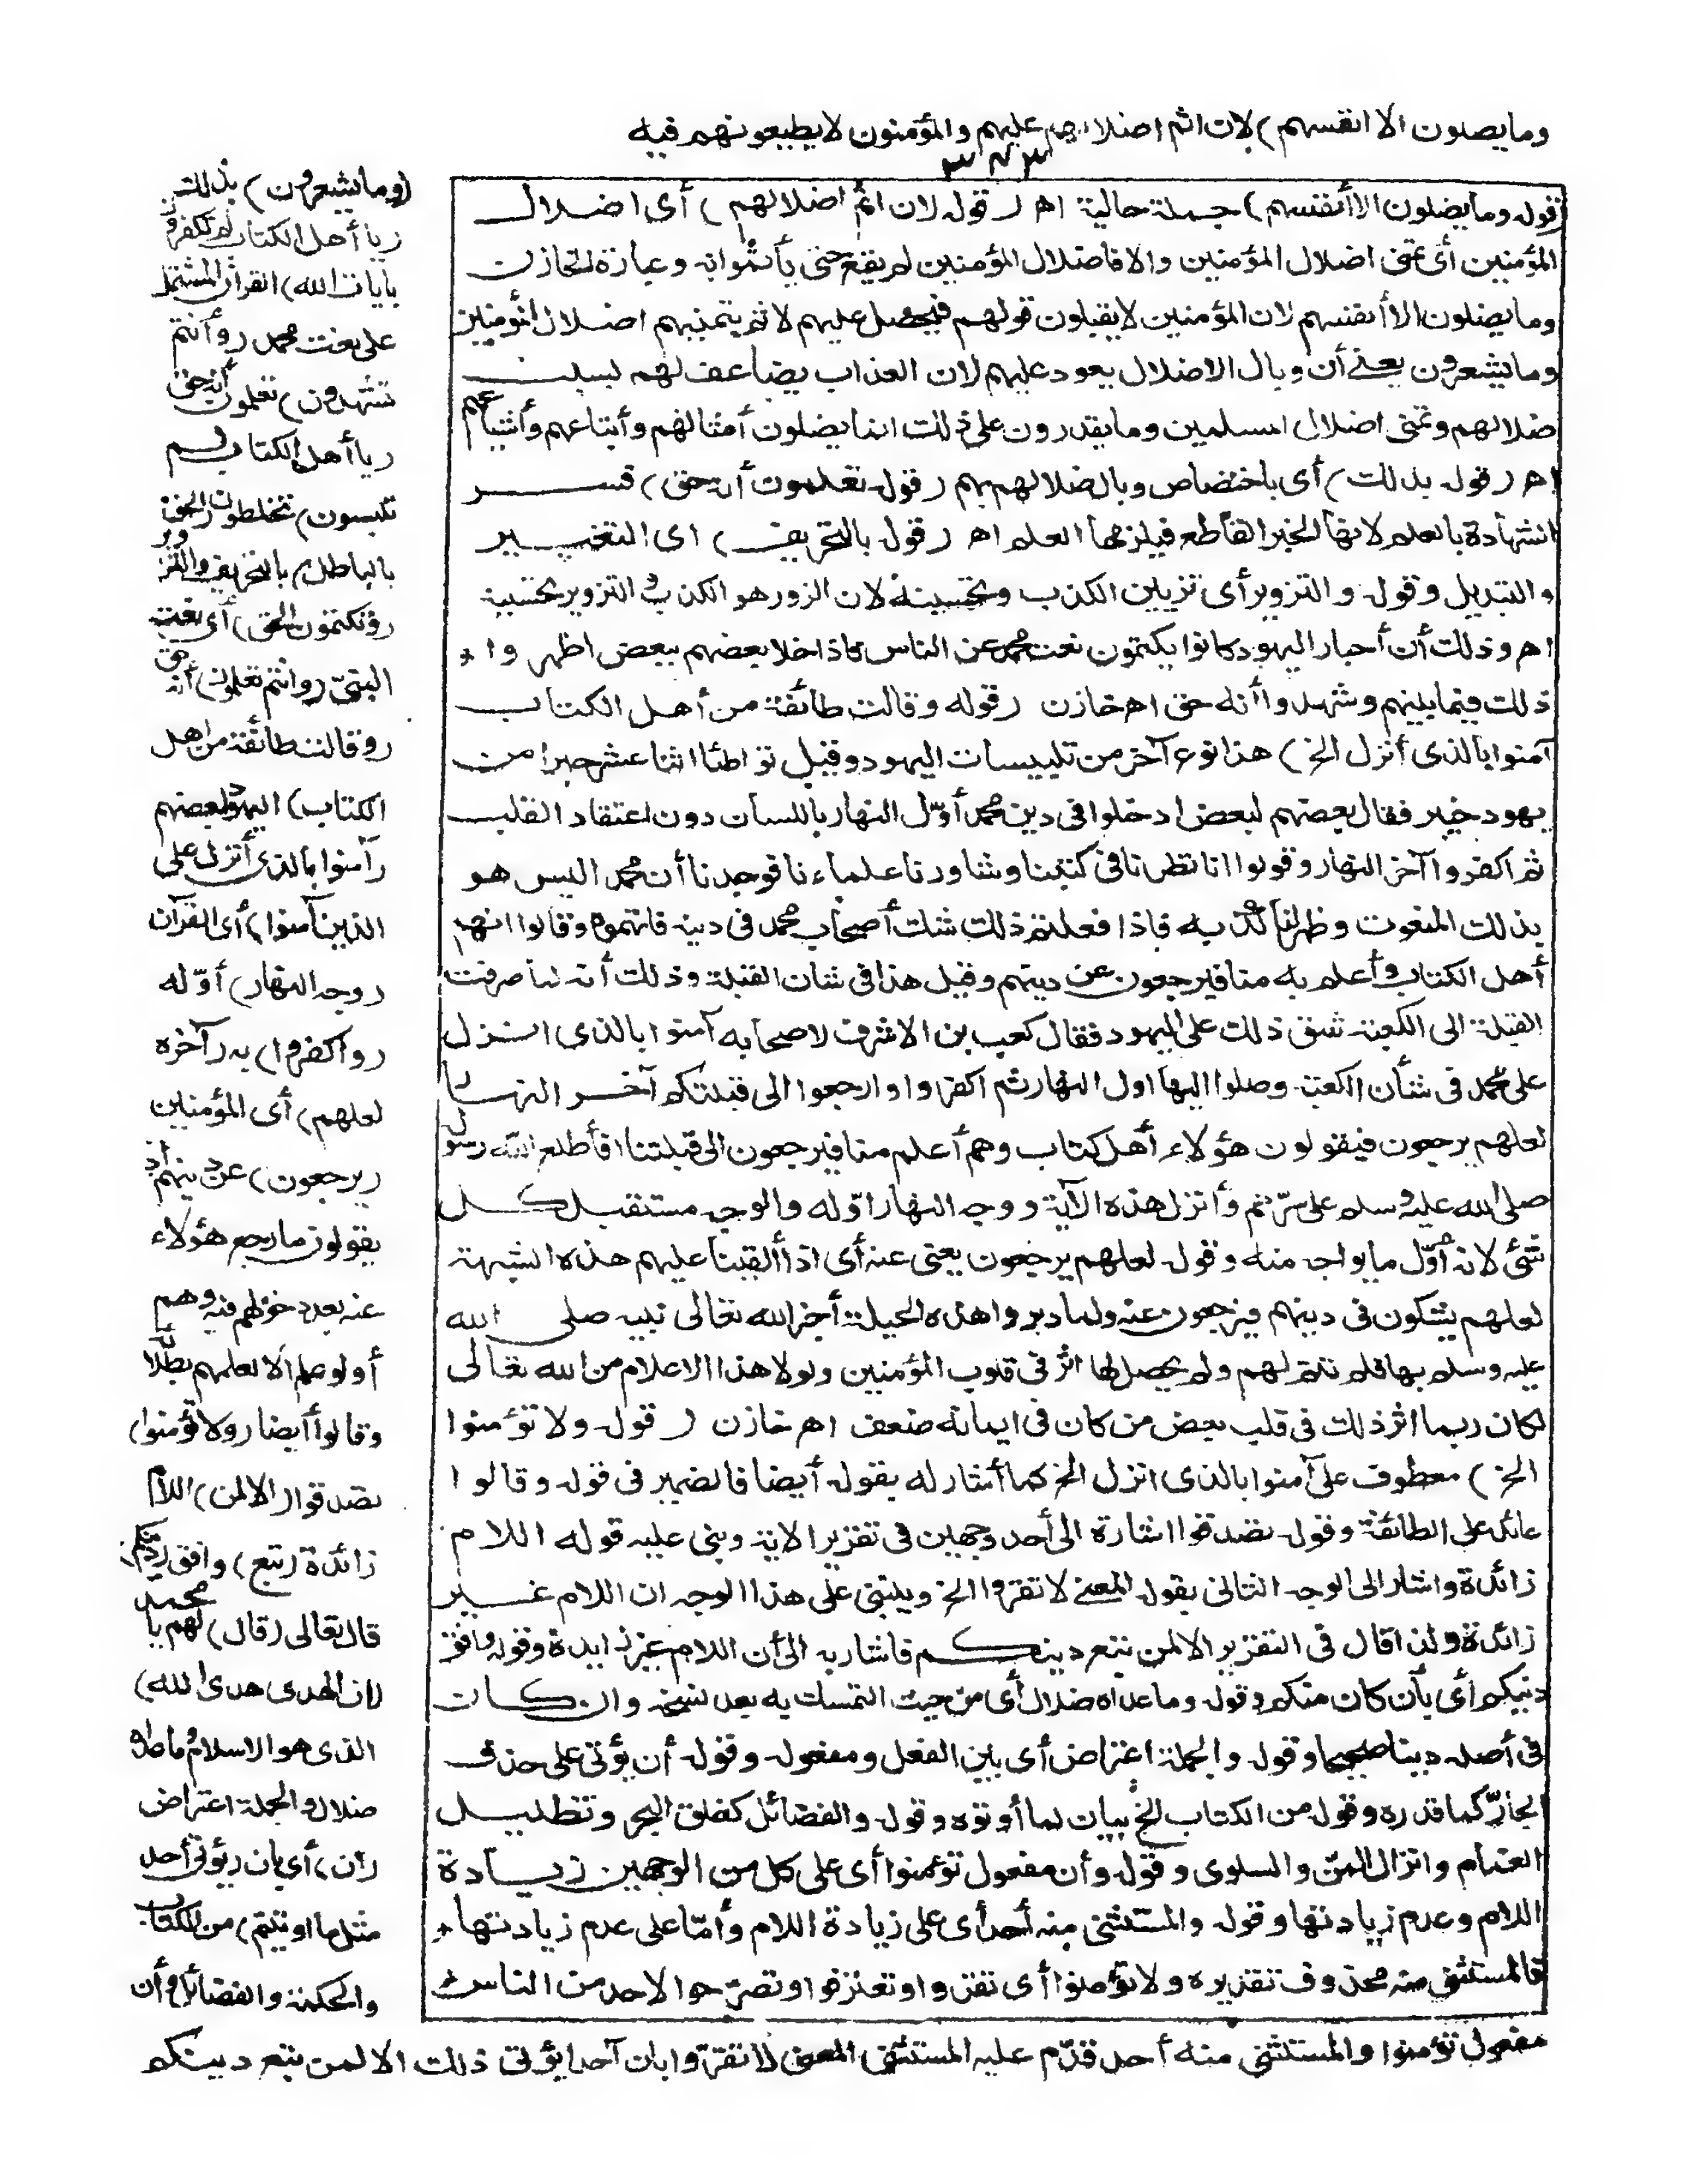 وما يضلون الا انفسهم) لان اثم اضلالهم عليهم والمؤمنون لا يطيعونهم فيه
٣٤٣
(قوله وما يضلون الا أنفسهم) جملة حالية اه (قوله لان اثم اضلالهم) أى اضلال
المؤمنين أى تمنى اضلال المؤمنين والا فاضلال المؤمنين لم يقع حتى يأثموا به وعبارة الخازن
وما يضلون الا أنفسهم لان المؤمنين لا يقبلون قولهم فيحصل عليهم لاثم بتمنيهم اضلال المؤمنين
وما يشعرون يعنى أن وبال الاضلال يعود عليهم لان العذاب يضاعف لهم بسبب
ضلالهم وتمنى اضلال المسلمين وما يقدرون على ذلك انما يضلون أمثالهم وأتباعهم وأشياعهم
اه (قوله بذلك) أى باختصاص وبال ضلالهم بهم (قوله تعلمون أنه حق) فسر
الشهادة بالعلم لانها الخبر القاطع فيلزمها العلم اه (قوله بالتحريف) اى التغيير
والتبديل وقوله والتزوير أى تزيين الكذب وتحسينه لان الزور هو الكذب والتزوير تحسينه
اه وذلك أن أحبار اليهود كانوا يكتمون نعت محمد عن الناس فاذا خلا بعضهم ببعض اظهروا
ذلك فيما بينهم وشهدوا أنه حق اه خازن (قوله وقالت طائفة من أهل الكتاب
آمنوا بالذى أنزل الخ) هذا نوع آخر من تلبيسات اليهود وقيل تواطأ اثنا عشر حبرا من
يهود خيبر فقال بعضهم لبعض ادخلوا فى دين محمد أوّل النهار باللسان دون اعتقاد القلب
ثم اكفروا آخر النهار وقولوا انا نظرنا فى كتبنا وشاورنا علماءنا فوجدنا أن محمد اليس هو
بذلك المنعوت وظهر لنا كذبه فاذا فعلتم ذلك شك أصحاب محمد فى دينه فاتهموه وقالوا انهم
أهل الكتاب وأعلم به منا فيرجعون عن دينهم وقيل هذا فى شان القبلة وذلك أنه لما صرفت
القبلة الى الكعبة شق ذلك على اليهود فقال كعب بن الاشرف لاصحابه آمنوا بالذى انزل
على محمد فى شأن الكعبة وصلوا اليها اول النهار ثم اكفروا وارجعوا الى قبلتكم آخر النهار
لعلهم يرجعون فيقولون هؤلاء أهل كتاب وهم أعلم منا فيرجعون الى قبلتنا فأطلع الله رسوله
صلى الله عليه وسلم على سرّهم وأنزل هذه الآية ووجه النهار اوّله والوجه مستقبل كل
شئ لانه أوّل ما يواجه منه وقوله لعلهم يرجعون يعنى عنه أى اذا ألقينا عليهم هذه الشبهة
لعلهم يشكون فى دينهم فيرجعون عنه ولما دبروا هذه الحيلة أخبر الله تعالى نبيه صلى الله
عليه وسلم بها فلم تتم لهم ولم يحصل لها اثر فى قلوب المؤمنين ولولا هذا الاعلام من الله تعالى
لكان ربما اثر ذلك فى قلب بعض من كان فى ايمانه ضعف اه خازن (قوله ولا تؤمنوا
الخ) معطوف على آمنوا بالذى انزل الخ كما أشار له بقوله أيضا فالضمير فى قوله وقالوا
عائد على الطائفة وقوله تصدقوا اشارة الى أحد وجهين فى تقرير الاية وبنى عليه قوله اللام
زائدة واشار الى الوجه الثانى بقوله المعنى لا تقروا الخ وينبنى على هذا الوجه ان اللام غير
زائدة ولذا قال فى التقرير الا لمن يتبع دينكم فاشار به الى أن اللام غير زايدة وقوله وافق
دينكم أى بأن كان منكم وقوله وما عداه ضلال أى من حيث التمسك به بعد نسخه وان كان
فى أصله دينا صحيحا وقوله والجملة اعتراض أى بين الفعل ومفعوله وقوله أن يؤتى على حذف
الجارّ كما قدره وقوله من الكتاب الخ بيان لما أوتوه وقوله والفضائل كفلق البحر وتظليل
الغمام وانزال المنّ والسلوى وقوله وأن مفعول تؤمنوا أى على كل من الوجهين زيادة
اللام وعدم زيادتها وقوله والمستثنى منه أحد أى على زيادة اللام وأمّا على عدم زيادتها
فالمستثنى منه محذوف تقديره ولا تؤمنوا أى تقروا وتعترفوا وتصرّحوا لاحد من الناس
(وما يشعرون) بذلك
(يا أهل الكتاب لم تكفرون
بايات الله) القرآن المشتمل
على نعت محمد (وأنتم
تشهدون) تعلمون أنه حق
(يا أهل الكتاب لم
تلبسون) تخلطون (الحق
بالباطل) بالتحريف والتزوير
(وتكتمون الحق) أى نعت
النبىّ (وانتم تعلمون) أنه حق
(وقالت طائفة من اهل
الكتاب) اليهود لبعضهم
(آمنوا بالذى أنزل على
الذين آمنوا) أى القرآن
(وجه النهار) أوّله
(واكفروا) به (آخره
لعلهم) أى المؤمنين
(يرجعون) عن دينهم اذ
يقولون ما رجع هؤلاء
عنه بعد دخولهم فيه وهم
أولو علم الا لعلمهم بطلانه
وقالوا أيضا (ولا تؤمنوا)
تصدقوا (الا لمن) اللام
زائدة (تبع) وافق (دينكم)
قال تعالى (قل) لهم يا محمد
(ان الهدى هدى الله)
الذى هو الاسلام وما عداه
ضلال والجملة اعتراض
(أن) أى بان (يؤتى أحد
مثل ما اوتيتم) من الكتاب
والحكمة والفضائل وأن
مفعول تؤمنوا والمستثنى منه أحد قدّم عليه المستثنى المعنى لا تقرّوا بان آحدا يؤتى ذلك الا لمن يتبع دينكم